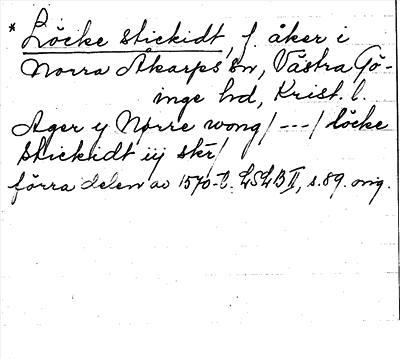 * Löcke stickidt, f. åker i
Norra Åkarps sn, Västra Gö-
inge hd, Krist. l.
Ager y Norre wong/---/löcke
stickidt iij skr/
förra delen av 1570-t. LSLB II, s. 89. orig.